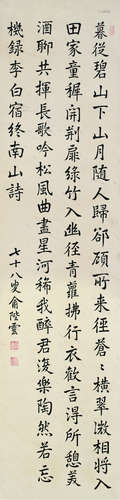 暮從碧山下山月隨人歸卻顧所來徑蒼〻橫翠微相將入
田家童穉開荊扉綠竹入幽徑青蘿拂行衣歡言得所憩美
酒聊共揮長歌吟松風曲盡星河稀我醉君復樂陶然若忘
機錄李白宿終南山詩
七十八叟俞陛雲